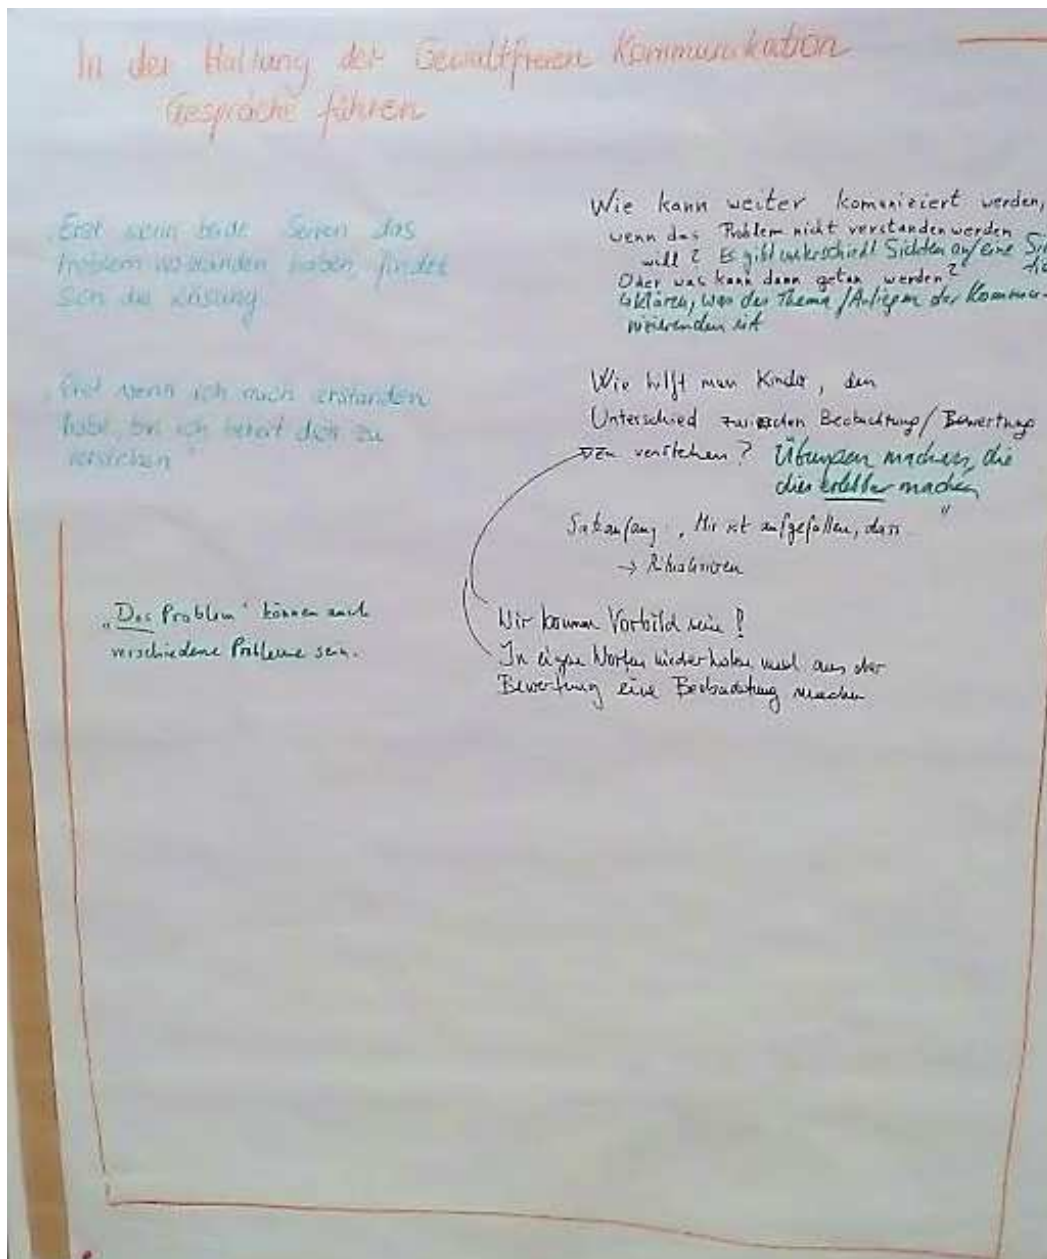 In der Haltung der Gewaltfreien Kommunikation
Gespräche führen
„Erst wenn beide Seiten das
Problem verstanden haben, findet
sich die Lösung.
„Erst wenn ich mich verstanden
habe, bin ich bereit dich zu
verstehen"
„Das Problem" können auch
verschiedene Probleme sein.
Wie kann weiter komuniziert werden,
wenn das Problem nicht verstanden werden
will? Es gibt unterschiedl. Sichten auf eine
Oder was kann dann getan werden?
klären, was das Thema/Anliegen der
ist
Wie hilft man Kinder, den
Unterschied zwischen Beobachtung/Bewertung
zu verstehen? Übungen machen, die
dies erlebbar machen
Satzanfang: „Mir ist aufgefallen, dass "
→ Ritualisieren
Wir können Vorbild sein!
In eigen Worten wiederholen und aus der
Bewertung eine Beobachtung machen